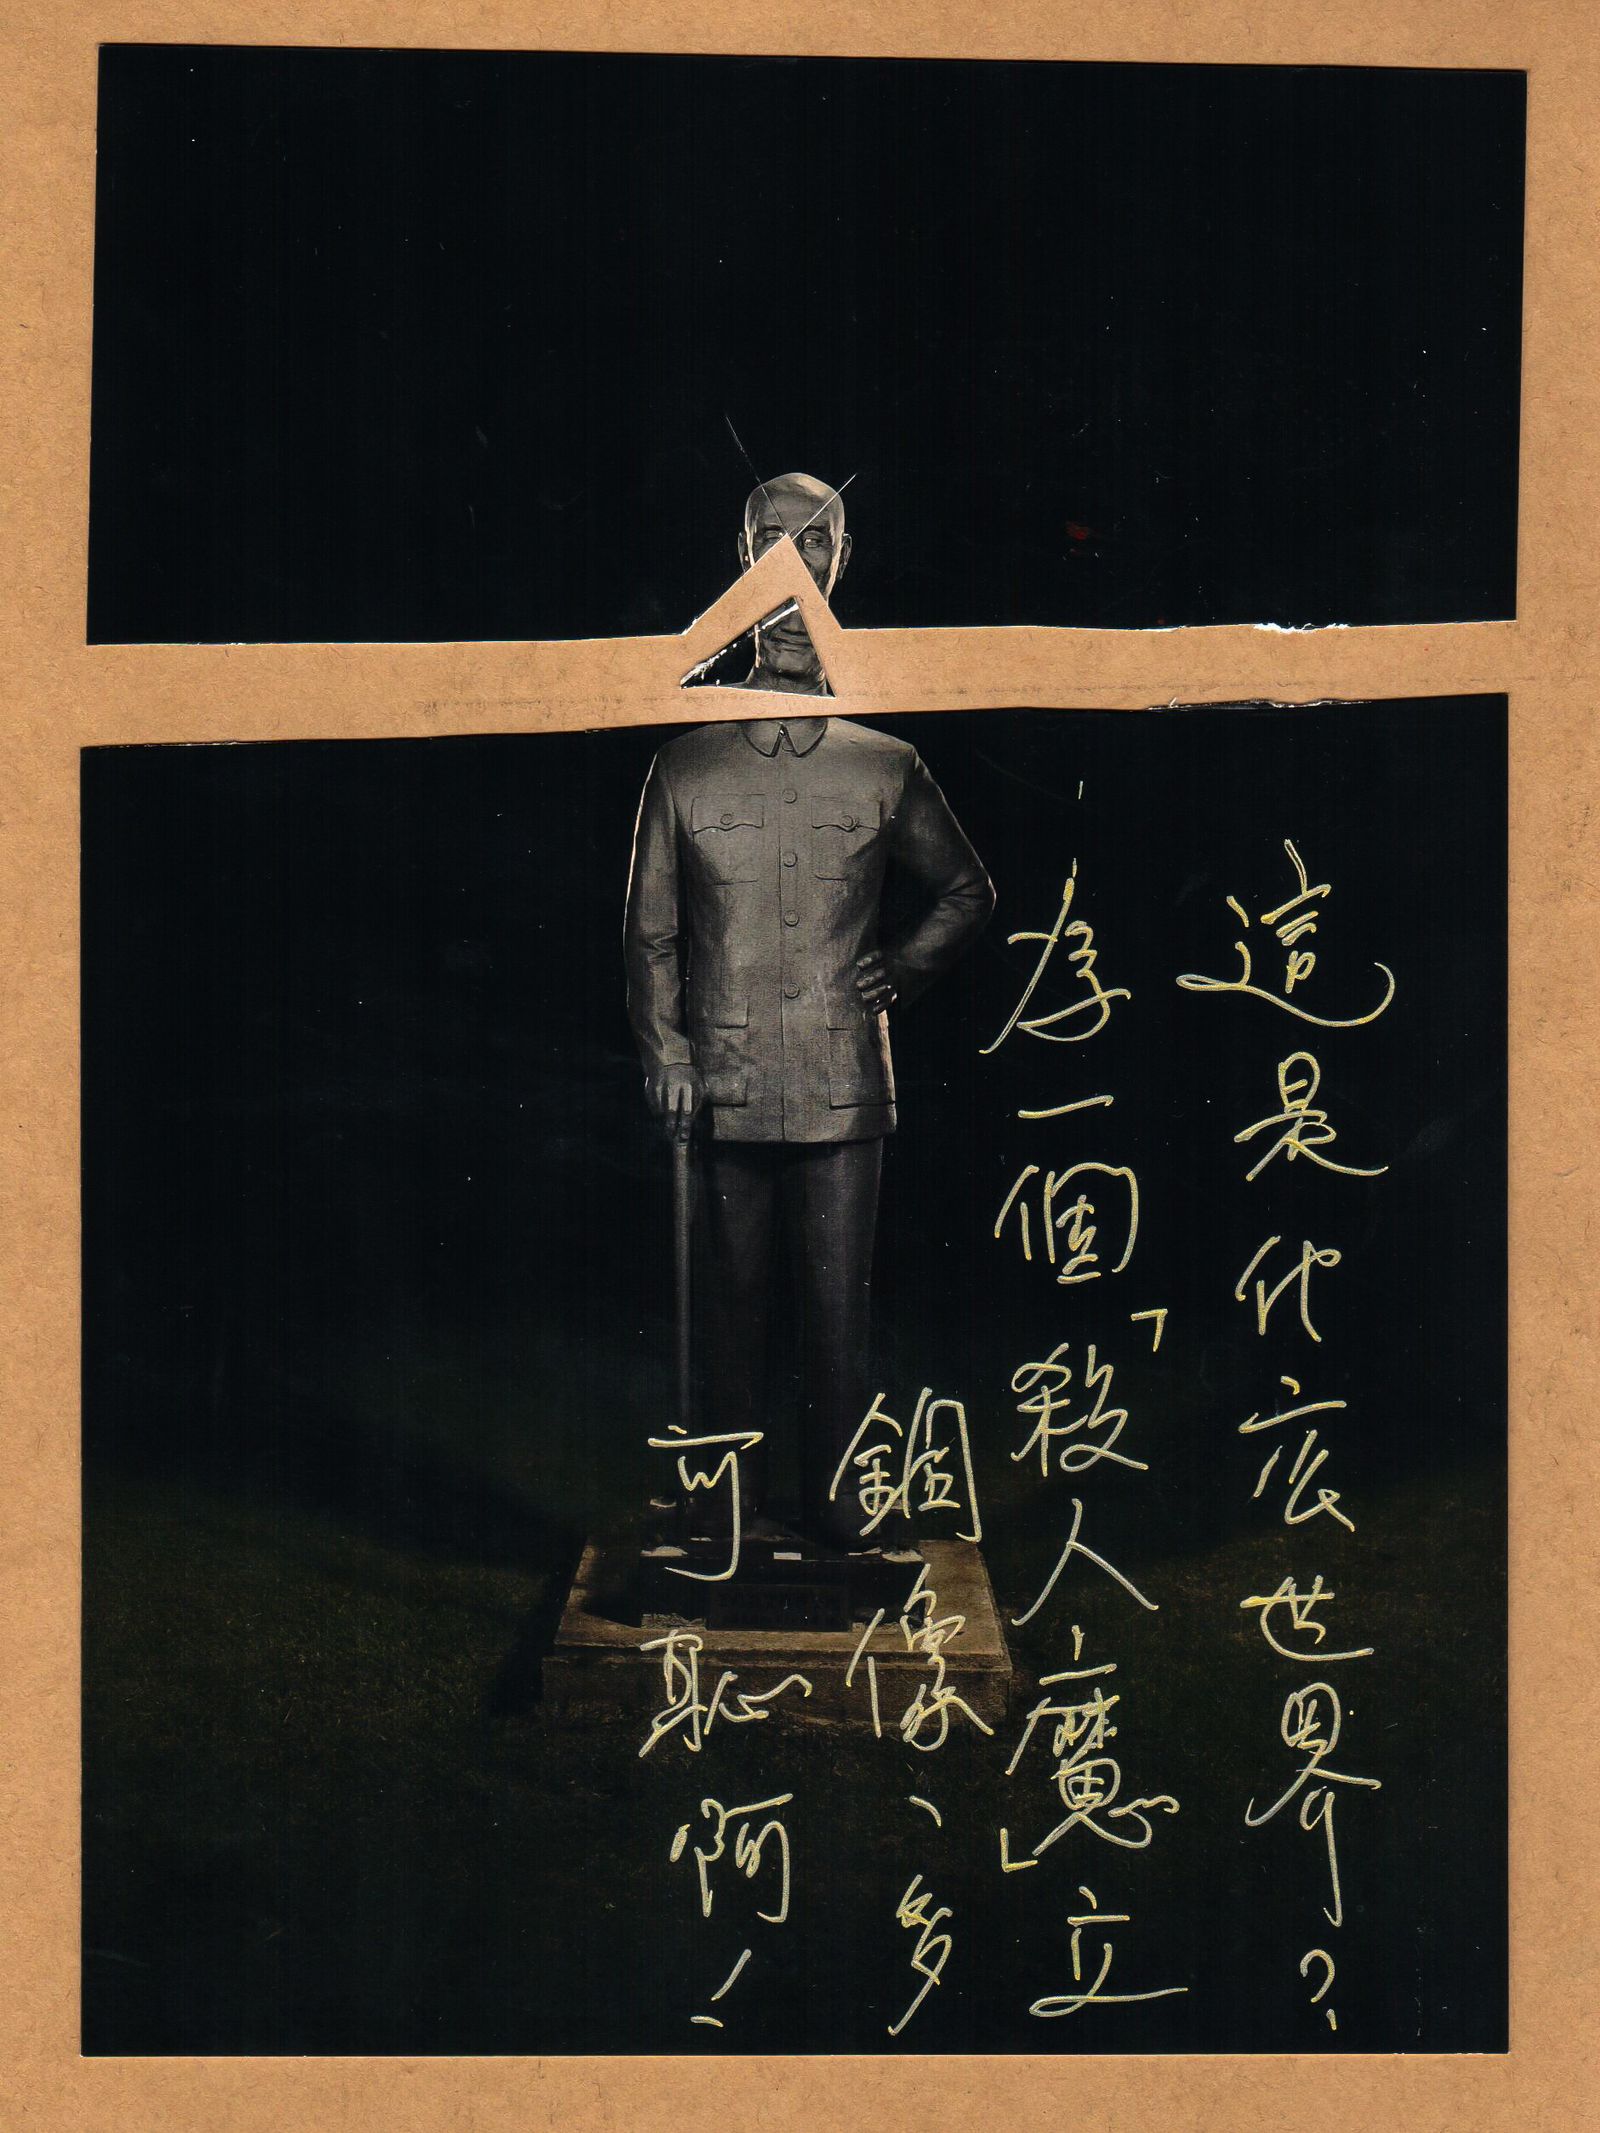 這是什底世界？
為一個「殺人魔」立
銅像、多
可恥啊！